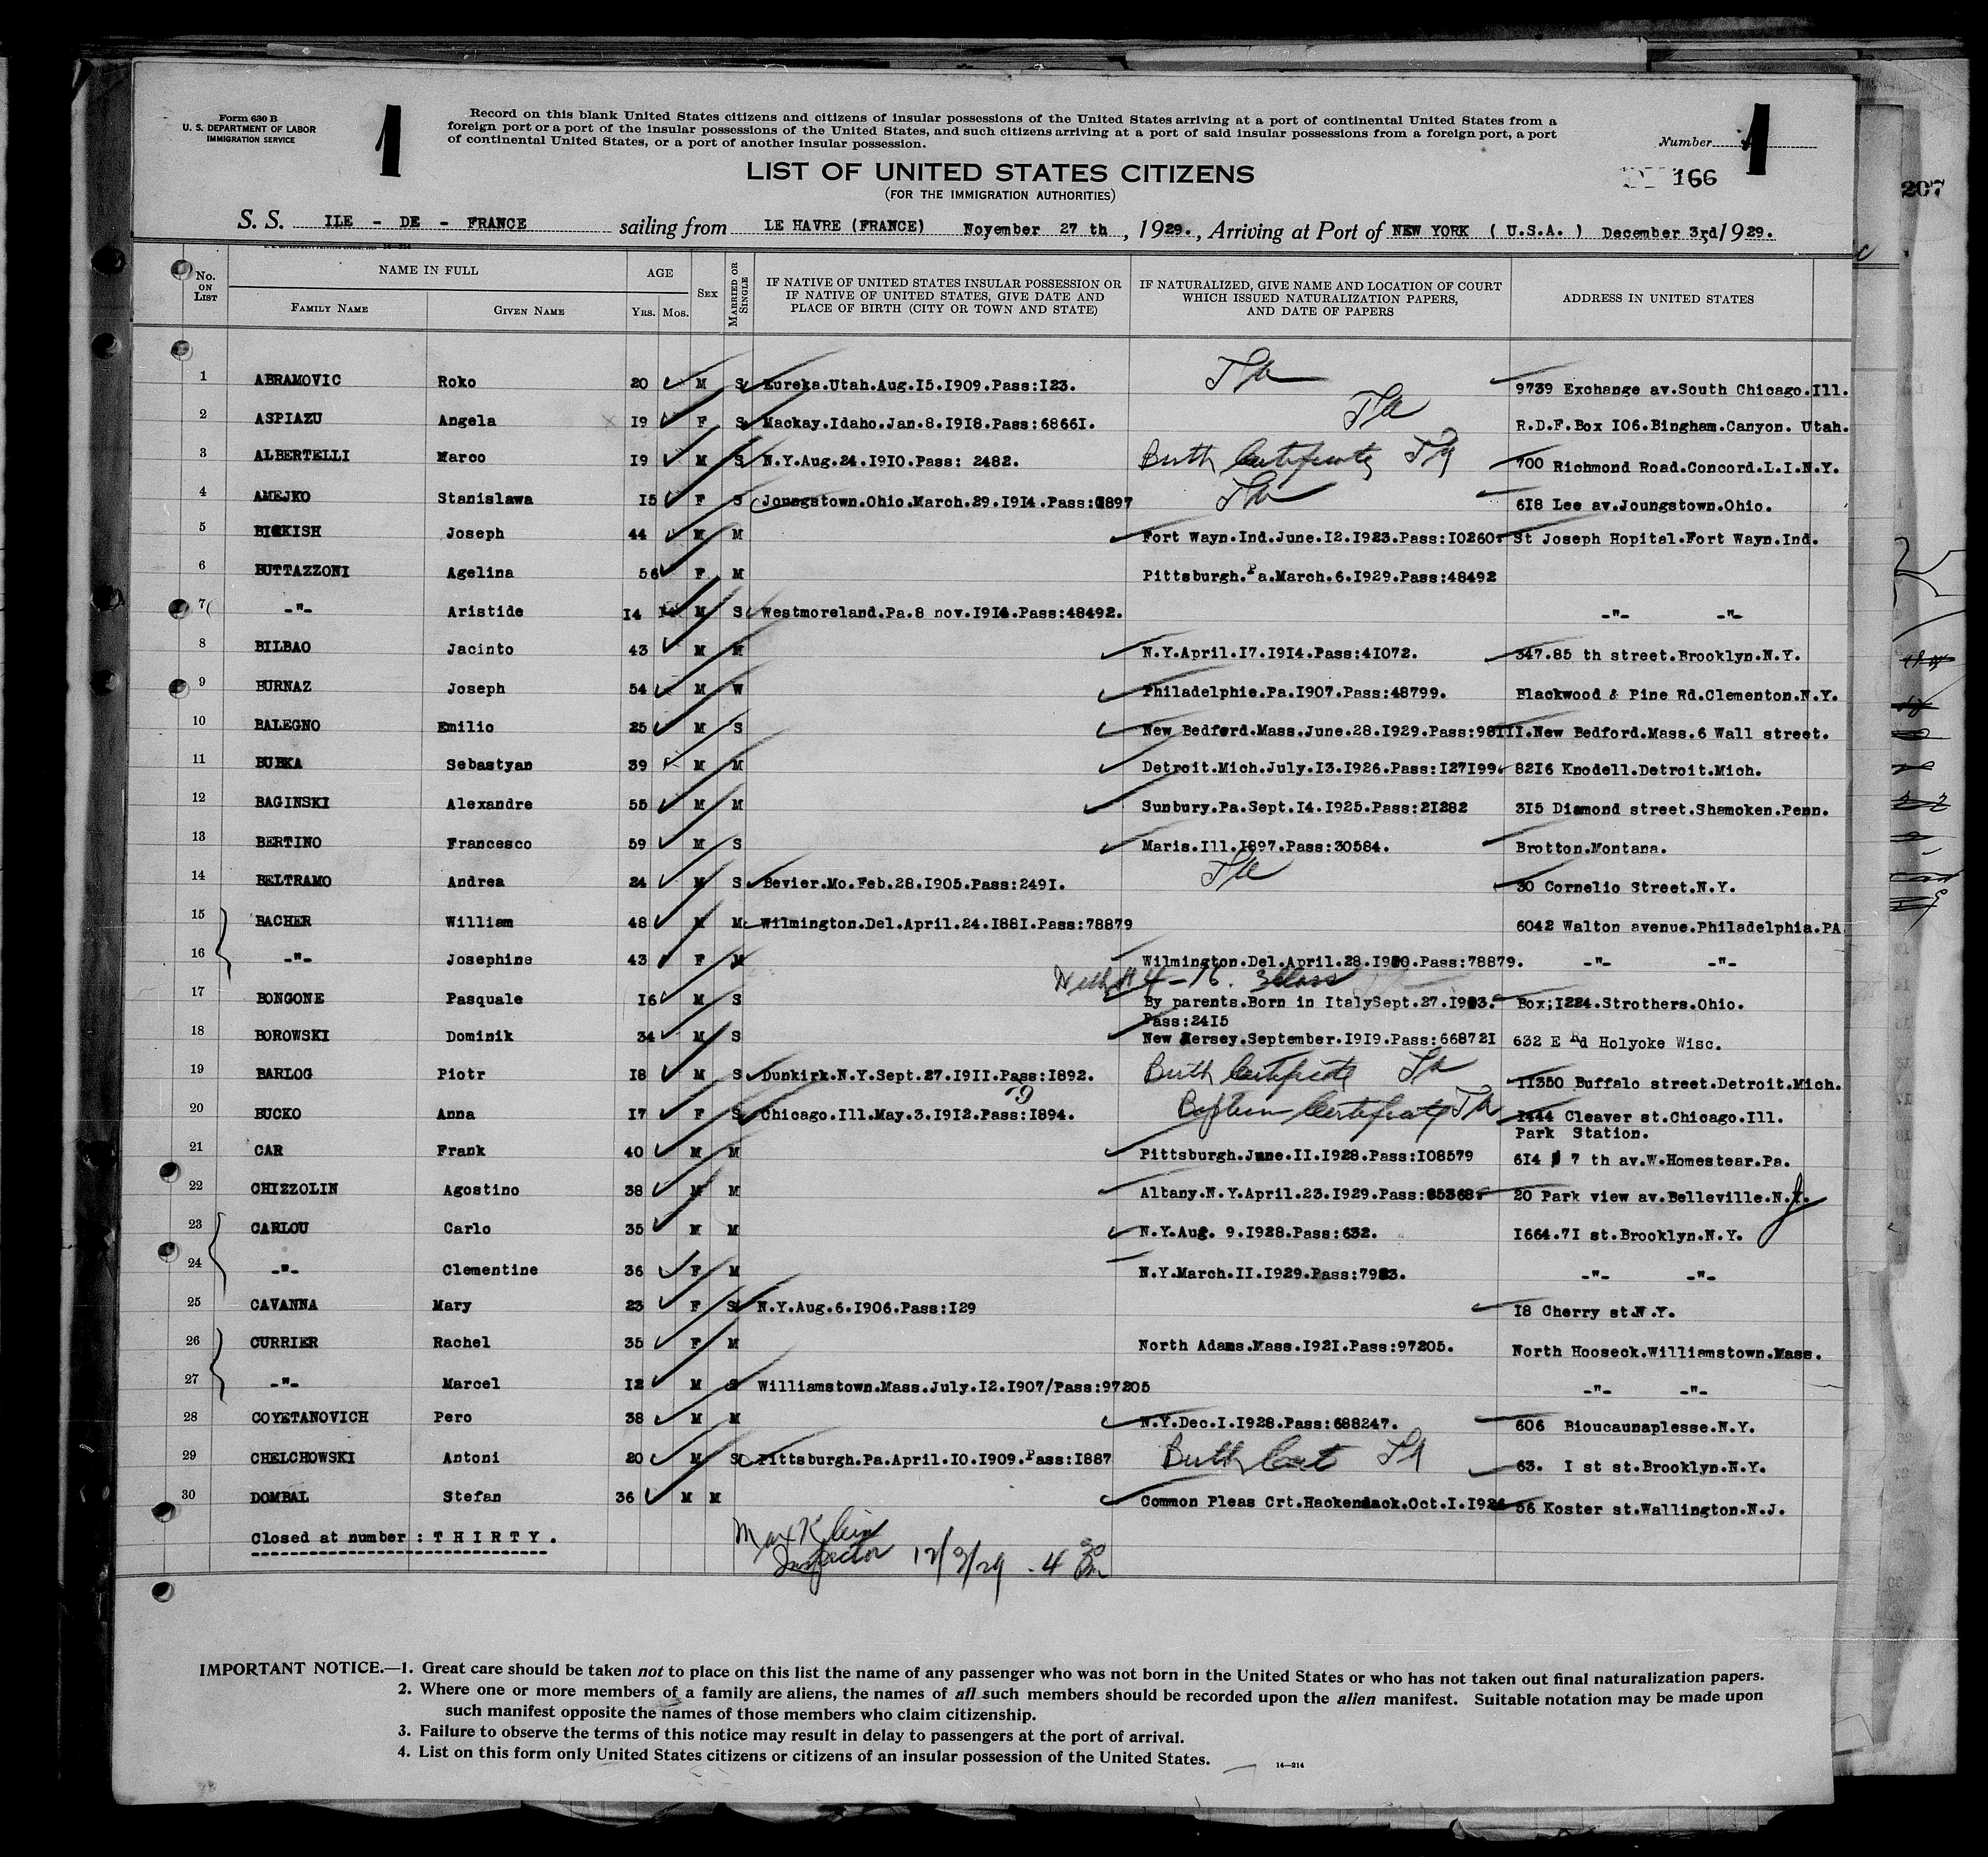 Form 630 B
U. S. DEPARTMENT OF LABOR
IMMIGRATION SERVICE
1
Record on this blank United States citizens and citizens of insular possessions of the United States arriving at a port of continental United States from a
foreign port or a port of the insular possessions of the United States, and such citizens arriving at a port of said insular possessions from a foreign port, a port
of continental United States, or a port of another insular possession.
Number 1
LIST OF UNITED STATES CITIZENS
(FOR THE IMMIGRATION AUTHORITIES)
166
207
S. S. ILE - DE - FRANCE sailing from LE HAVRE (FRANCE) November 27 th, 1929., Arriving at Port of NEW YORK ( U.S.A. ) December 3rd 1929.
No. ON LIST NAME IN FULL FAMILY NAME GIVEN NAME AGE YRS. MOS. SEX MARRIED OR SINGLE IF NATIVE OF UNITED STATES INSULAR POSSESSION OR IF NATIVE OF UNITED STATES, GIVE DATE AND PLACE OF BIRTH (CITY OR TOWN AND STATE) IF NATURALIZED, GIVE NAME AND LOCATION OF COURT WHICH ISSUED NATURALIZATION PAPERS, AND DATE OF PAPERS ADDRESS IN UNITED STATES
1 ABRAMOVIC Roko 20 M S Eureka.Utah.Aug.I5.I909.Pass:I23. 9739 Exchange av.South Chicago.Ill.
2 ASPIAZU Angela I9 F S Mackay.Idaho.Jan.8.I9I8.Pass:6866I. R.D.F.Box I06.Bingham.Canyon. Utah.
3 ALBERTELLI Marco I9 M S N.Y.Aug.24.I9I0.Pass: 2482. Birth Certificate 700 Richmond Road.Concord.L.I.N.Y.
4 AMEJKO Stanislawa I5 F S Joungstown.Ohio.March.29.I9I4.Pass:I897 6I8 Lee av.Joungstown.Ohio.
5 BICKISH Joseph 44 M M Fort Wayn.Ind.June.I2.I923.Pass:I0260. St Joseph Hopital.Fort Wayn.Ind.
6 BUTTAZZONI Agelina 56 F M Pittsburgh.Pa.March.6.I929.Pass:48492
7 -"- Aristide I4 M S Westmoreland.Pa.8 nov.I914.Pass:48492. -"- -"-
8 BILBAO Jacinto 43 M M N.Y.April.I7.I9I4.Pass:4I072. 347.85 th street.Brooklyn.N.Y.
9 BURNAZ Joseph 54 M W Philadelphie.Pa.I907.Pass:48799. Blackwood & Pine Rd.Clementon.N.Y.
10 BALEGNO Emilio 25 M S New Bedford.Mass.June.28.I929.Pass:98III. New Bedford.Mass.6 Wall street.
11 BUBKA Sebastyan 39 M M Detroit.Mich.July.I3.I926.Pass:I27I99. 82I6 Knodell.Detroit.Mich.
12 BAGINSKI Alexandre 55 M M Sunbury.Pa.Sept.I4.I925.Pass:2I282 3I5 Diamond street.Shamoken.Penn.
13 BERTINO Francesco 59 M S Maris.Ill.I897.Pass:30584. Brotton.Montana.
14 BELTRAMO Andrea 24 M S Bevier.Mo.Feb.28.I905.Pass:249I. 30 Cornelio Street.N.Y.
15 BACHER William 48 M M Wilmington.Del.April.24.I88I.Pass:78879 6042 Walton avenue.Philadelphia.PA
16 -"- Josephine 43 F M Wilmington.Del.April.28.I9 0.Pass:78879. -"- -"-
4-16. 3 Class
17 BONGONE Pasquale I6 M S By parents.Born in ItalySept.27.I9 3. Box;I224.Strothers.Ohio.
Pass:24I5
18 BOROWSKI Dominik 34 M S New Jersey.September.I9I9.Pass:66872I 632 E Rd Holyoke Wisc.
19 BARLOG Piotr I8 M S Dunkirk.N.Y.Sept.27.I9II.Pass:I892. Birth Certificate II350 Buffalo street.Detroit.Mich.
20 BUCKO Anna I7 F S Chicago.Ill.May.3.I9I2.Pass:I894. Certificate I444 Cleaver st.Chicago.Ill.
Park Station.
21 CAR Frank 40 M M Pittsburgh.June.II.I928.Pass:I08579 6I4 7 th av.W.Homestear.Pa.
22 CHIZZOLIN Agostino 38 M M Albany.N.Y.April.23.I929.Pass:85368. 20 Park view av.Belleville.N.J.
23 CARLOU Carlo 35 M M N.Y.Aug. 9.I928.Pass:632. I664.7I st.Brooklyn.N.Y.
24 -"- Clementine 36 F M N.Y.March.II.I929.Pass:79 3. -"- -"-
25 CAVANNA Mary 23 F S N.Y.Aug.6.I906.Pass:I29 I8 Cherry st.N.Y.
26 CURRIER Rachel 35 F M North Adams.Mass.I92I.Pass:97205. North Hooseck.Williamstown.Mass.
27 -"- Marcel I2 M S Williamstown.Mass.July.I2.I907/Pass:97205 -"- -"-
28 COYETANOVICH Pero 38 M M N.Y.Dec.I.I928.Pass:688247. 606 Bioucaunaplesse.N.Y.
29 CHELCHOWSKI Antoni 20 M S Pittsburgh.Pa.April.I0.I909.Pass:I887 Birth Cert 63. I st st.Brooklyn.N.Y.
30 DOMBAL Stefan 36 M M Common Pleas Crt.Hackensack.Oct.I.I926 56 Koster st.Wallington.N.J.
Closed at number : T H I R T Y .
Max Klein
Inspector 12/3/29 - 4 30 Pm
IMPORTANT NOTICE.—1. Great care should be taken not to place on this list the name of any passenger who was not born in the United States or who has not taken out final naturalization papers.
2. Where one or more members of a family are aliens, the names of all such members should be recorded upon the alien manifest. Suitable notation may be made upon
such manifest opposite the names of those members who claim citizenship.
3. Failure to observe the terms of this notice may result in delay to passengers at the port of arrival.
4. List on this form only United States citizens or citizens of an insular possession of the United States.
14—214